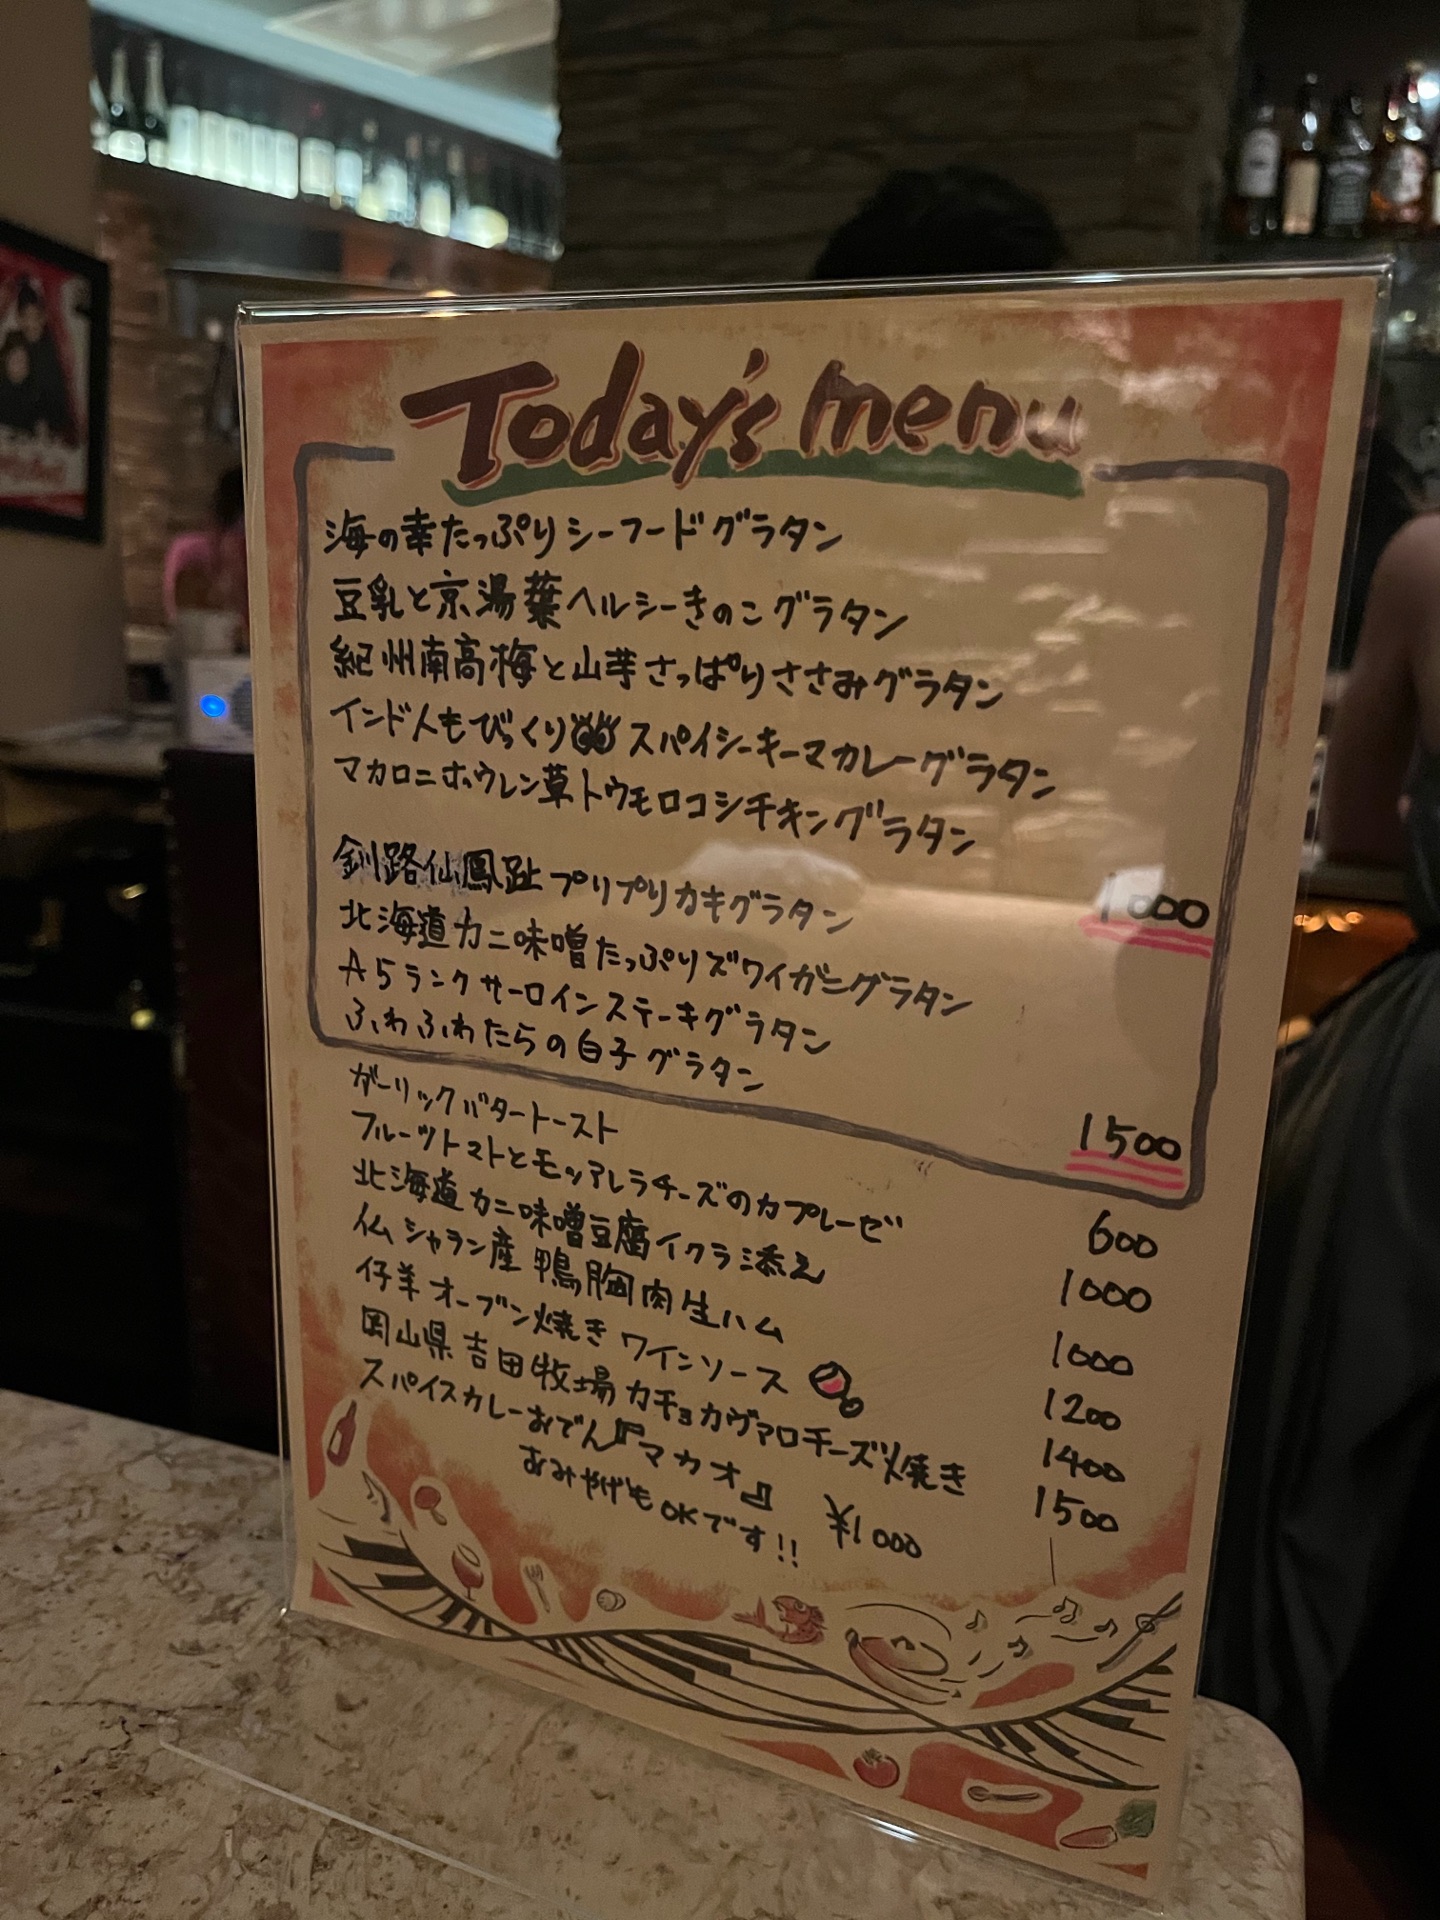 Today's menu
海の幸たっぷりシーフードグラタン
豆乳と京湯葉ヘルシーきのこグラタン
紀州南高梅と山芋さっぱりささみグラタン
インド人もびっくり スパイシーキーマカレーグラタン
マカロニホウレン草トウモロコシチキングラタン
1000
釧路仙鳳趾プリプリカキグラタン
北海道カニ味噌たっぷりズワイガニグラタン
A5ランクサーロインステーキグラタン
ふわふわたらの白子グラタン
1500
ガーリックバタートースト 600
フルーツトマトとモッアレラチーズのカプレーゼ 1000
北海道カニ味噌豆腐イクラ添え 1000
仏シャラン産鴨胸肉生ハム 1200
仔羊オーブン焼きワインソース 1400
岡山県吉田牧場カチョカヴァロチーズ焼き 1500
スパイスカレーおでん『マカオ』 ¥1000
おみやげもOKです!!